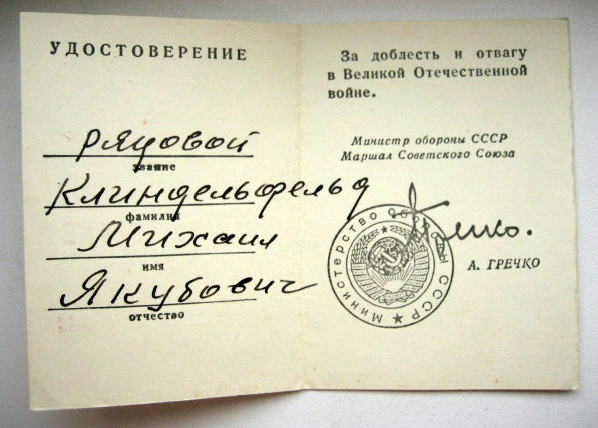 УДОСТОВЕРЕНИЕ
рядовой
звание
Клиндельфельд
фамилия
Михаил
имя
Якубович
отчество
За доблесть и отвагу
в Великой Отечественной
войне.
Министр обороны СССР
Маршал Советского Союза
Министерство Обороны СССР
А. ГРЕЧКО